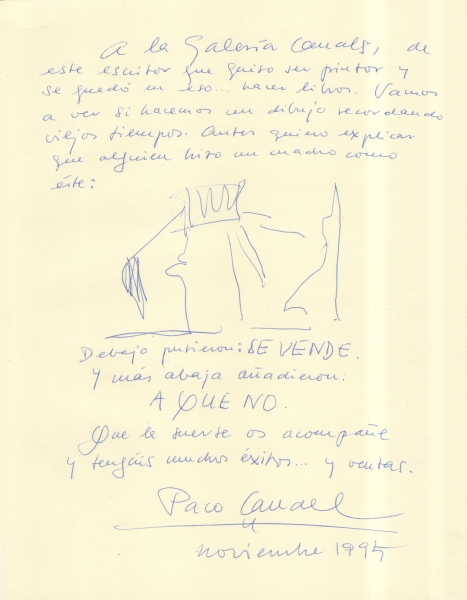 A la Galería Canals, de
este escritor que quiso ser pintor y
se quedó en eso... hacer libros. Vamos
a ver si hacemos un dibujo recordando
viejos tiempos. Antes quiero explicar
que alguien hizo un cuadro como
éste:
Debajo pusieron: SE VENDE.
Y más abajo añadieron:
A QUE NO.
Que la suerte os acompañe
y tengáis muchos éxitos... y ventas.
Paco Candel
noviembre 1995